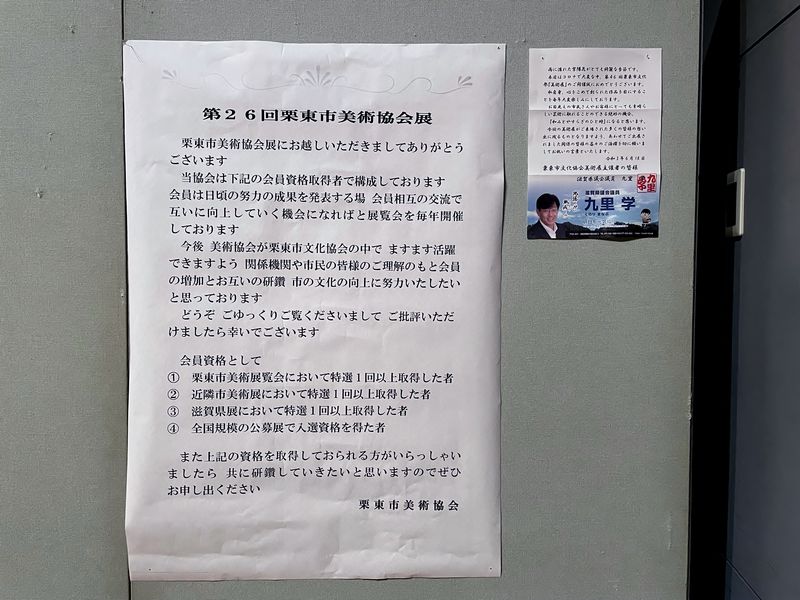 第26回栗東市美術協会展
栗東市美術協会展にお越しいただきましてありがとう
ございます
当協会は下記の会員資格取得者で構成しております
会員は日頃の努力の成果を発表する場 会員相互の交流で
互いに向上していく機会になればと展覧会を毎年開催
しております
今後 美術協会が栗東市文化協会の中で ますます活躍
できますよう 関係機関や市民の皆様のご理解のもと会員
の増加とお互いの研鑽 市の文化の向上に努力いたしたい
と思っております
どうぞ ごゆっくりご覧くださいまして ご批評いただ
けましたら幸いでございます
会員資格として
① 栗東市美術展覧会において特選1回以上取得した者
② 近隣市美術展において特選1回以上取得した者
③ 滋賀県展において特選1回以上取得した者
④ 全国規模の公募展で入選資格を得た者
また上記の資格を取得しておられる方がいらっしゃい
ましたら 共に研鑽していきたいと思いますのでぜひ
お申し出ください
栗東市美術協会
栗東市文化協会美術展主護者の皆様
滋賀県議会議員 九里
九里
滋賀県議会議員
九里 学
くのり まなぶ